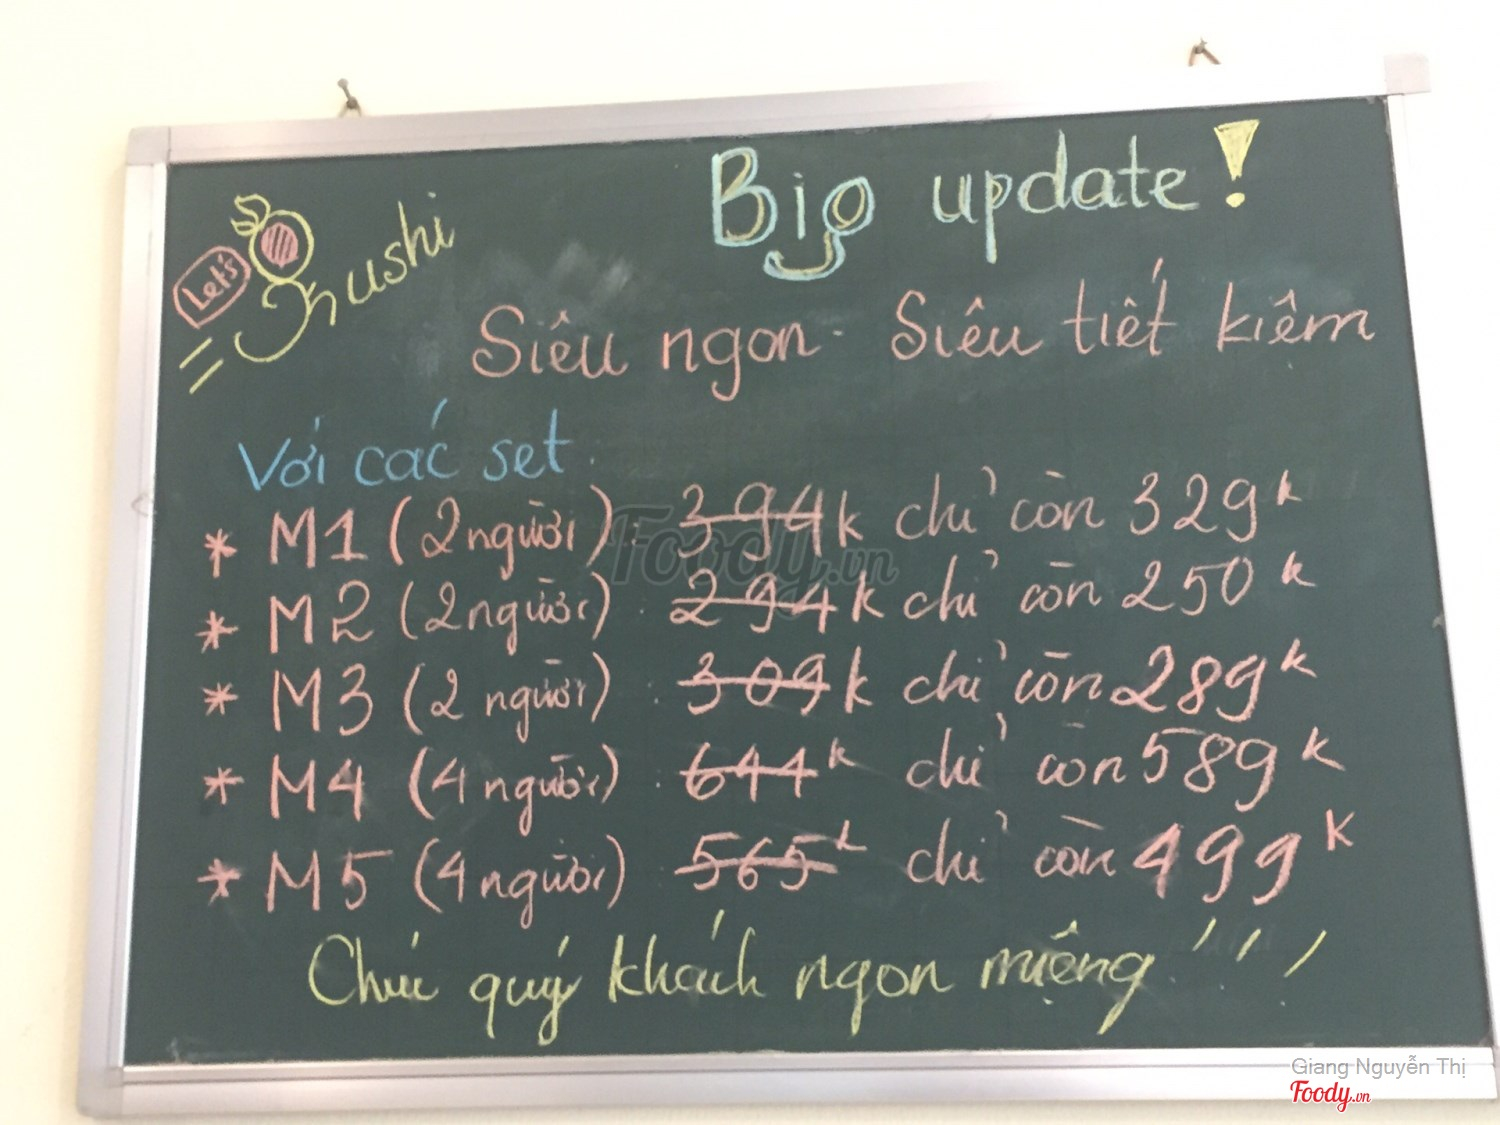 Let's sushi
Big update!
Siêu ngon - Siêu tiết kiệm
Với các set:
* M1 (2 người): 394k chỉ còn 329k
* M2 (2 người): 294k chỉ còn 250k
* M3 (2 người): 309k chỉ còn 289k
* M4 (4 người): 644k chỉ còn 589k
* M5 (4 người) 565k chỉ còn 499k
Chúc quý khách ngon miệng!!!
Foody.vn
Giang Nguyễn Thị
Foody.vn